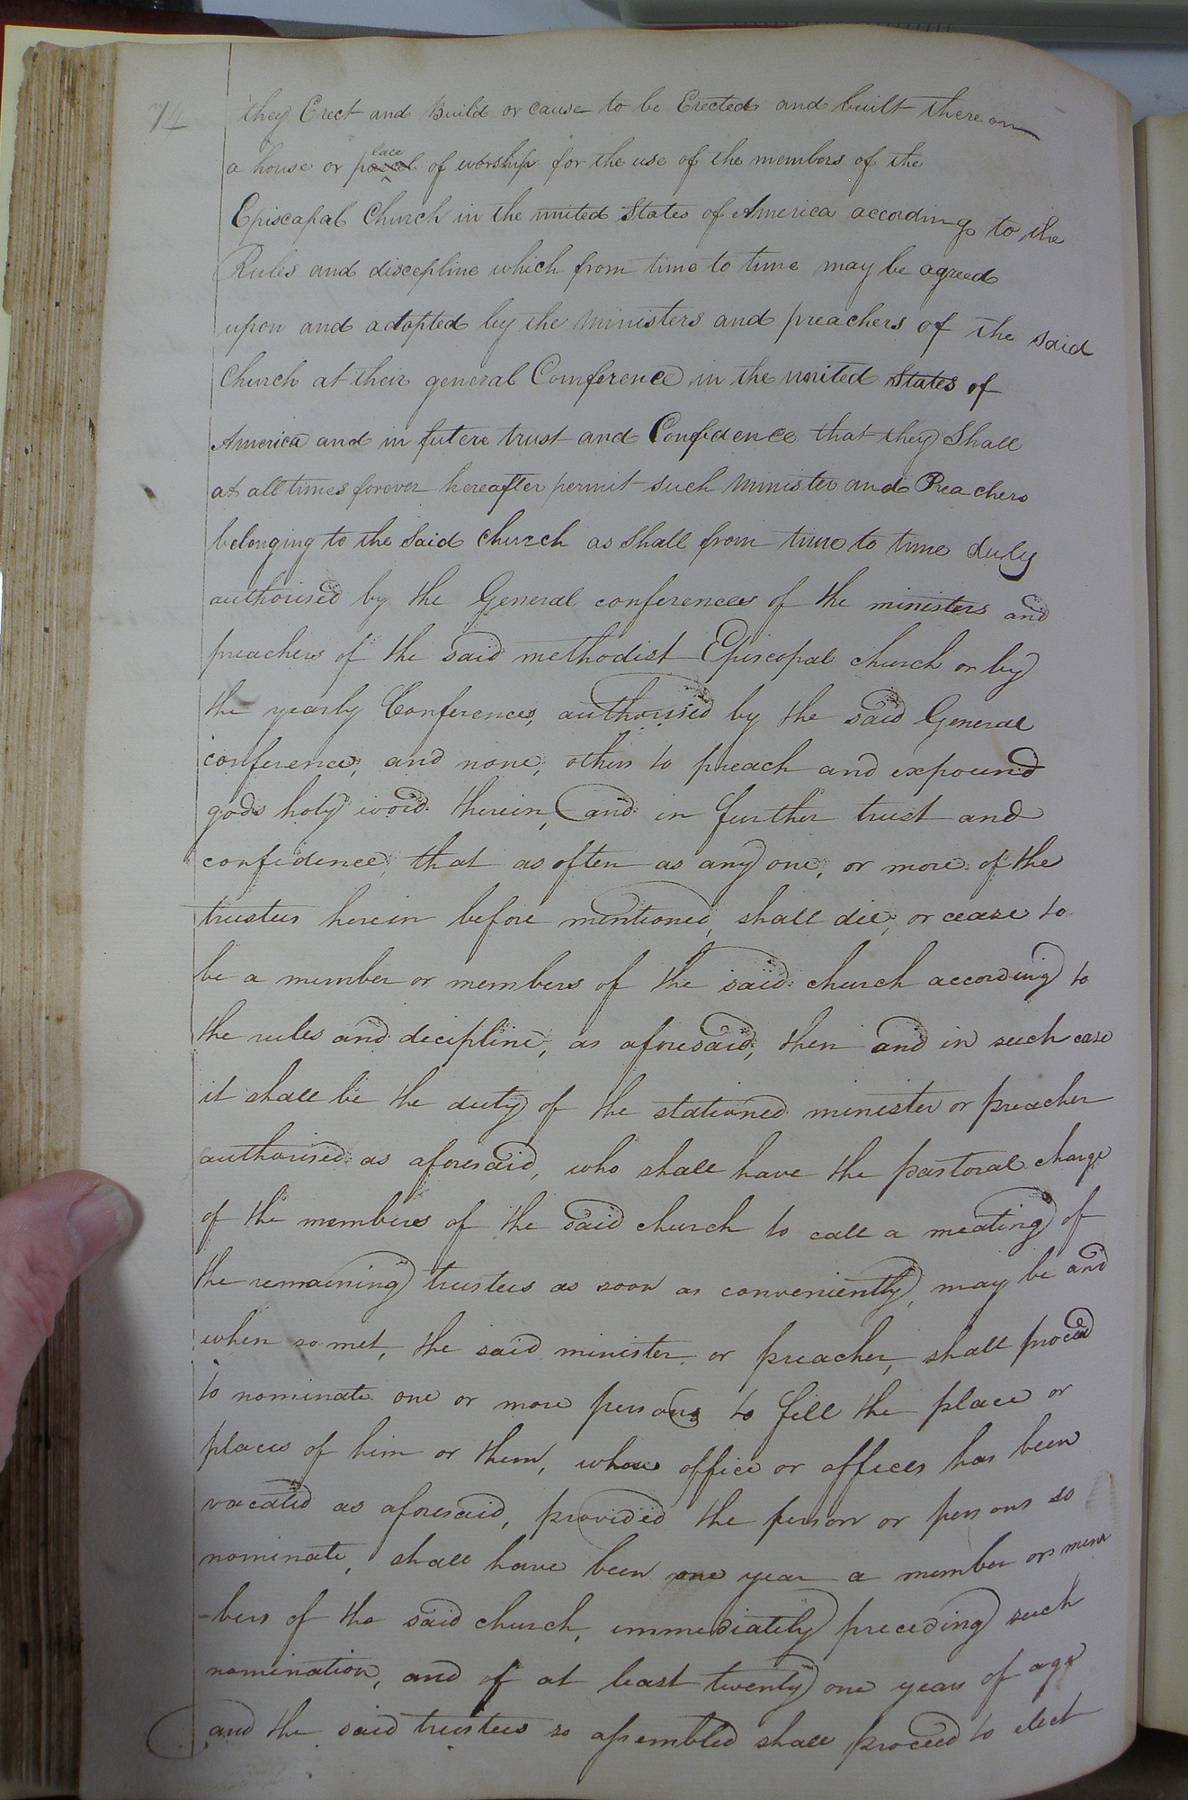 74
they Erect and Build or cause to be Erected and built there on
a house or place of worship for the use of the members of the
Episcapal Church in the united States of America according to the
Rules and discepline which from time to time may be agreed
upon and adopted by the Ministers and preachers of the said
Church at their general Comference in the united States of
America and in futere trust and Confidence that they Shall
at all times forever hereafter permit such Minister and Preachers
belonging to the Said Church as Shall from time to time duly
authorised by the General conferences of the ministers and
preachers of the said methodist Episcopal church or by
the yearly Conferences, authorised by the said General
conference, and none, others to preach and expound
gods holy word therein, and in further trust and
confidence, that as often as any one, or more of the
trustees herein before mentioned, shall die, or cease to
be a member or members of the said church according to
the rules and decipline, as aforesaid, then and in such case
it shall be the duty of the stationed minister or preacher
authorised as aforesaid, who shall have the pastoral charge
of the members of the said church to call a meating of
the remaining trustees as soon as conveniently, may be and
when so met, the said minister or preacher, shall proceed
to nominate one or more persons to fill the place or
places of him or them, whose office or offices has been
vacated as aforesaid, provided the person or persons so
nominate, shall have been one year a member or mem
-bers of the said church, immediately preceding such
nomination, and of at least twenty one years of age
and the said trustees so assembled shall proceed to elect